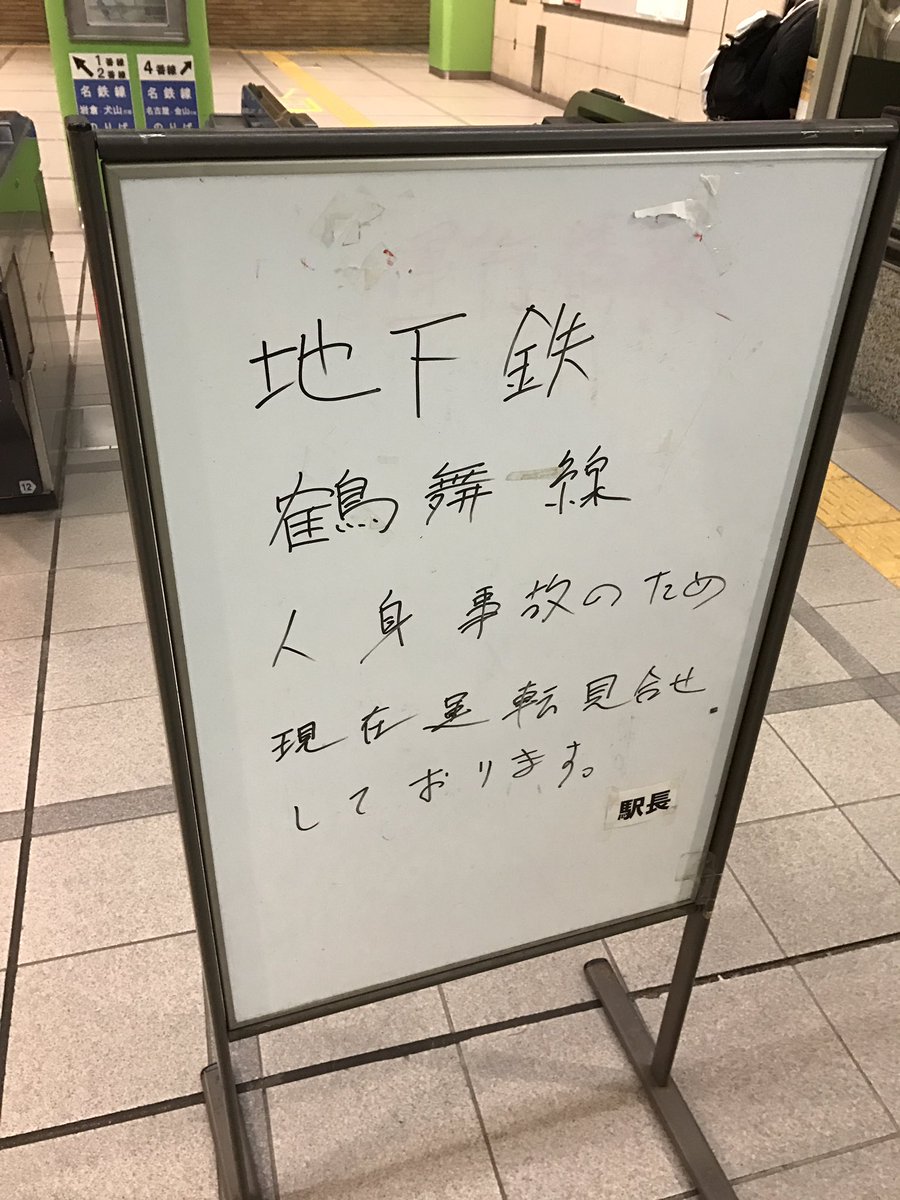 1番線
2番線
名鉄線
岩倉 犬山方面
のりば
4番線
名鉄線
名古屋 金山方面
のりば
地下鉄
鶴舞線
人身事故のため
現在運転見合せ
しております。
駅長
12